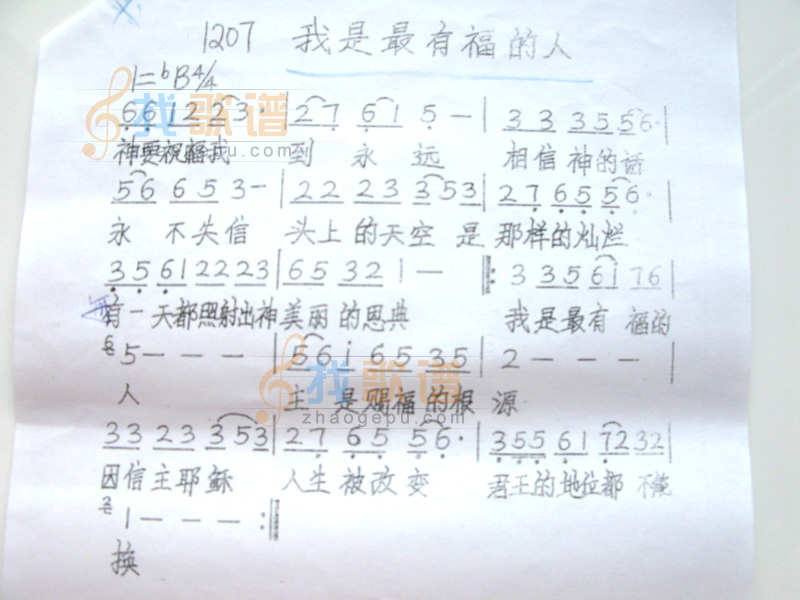 1207 我是最有福的人
1=♭B4/4
6 6 1 2 2 3· | 2 7 6 1 5 — | 3 3 3 5 5 6·
神要祝福我 到永远 相信神的话
5 6 6 5 3 — | 2 2 2 3 3 5 3 | 2 7 6 5 5 6· |
永不失信 头上的天空是那样的灿烂
3 5 6 1 2 2 2 3 | 6 5 3 2 1 — 𝄆 3 3 5 6 i 7 6 |
有一天都照射出神美丽的恩典 我是最有福的
6 5 — — — | 5 6 i 6 5 3 5 | 2 — — — |
人 主是赐福的根源
3 3 2 3 3 5 3 | 2 7 6 5 5 6· | 3 5 5 6 1 7 2 3 2 |
因信主耶稣 人生被改变 君王的地位都不能
2 1 — — — 𝄇
换
找歌谱
zhaogepu.com
找歌谱
zhaogepu.com